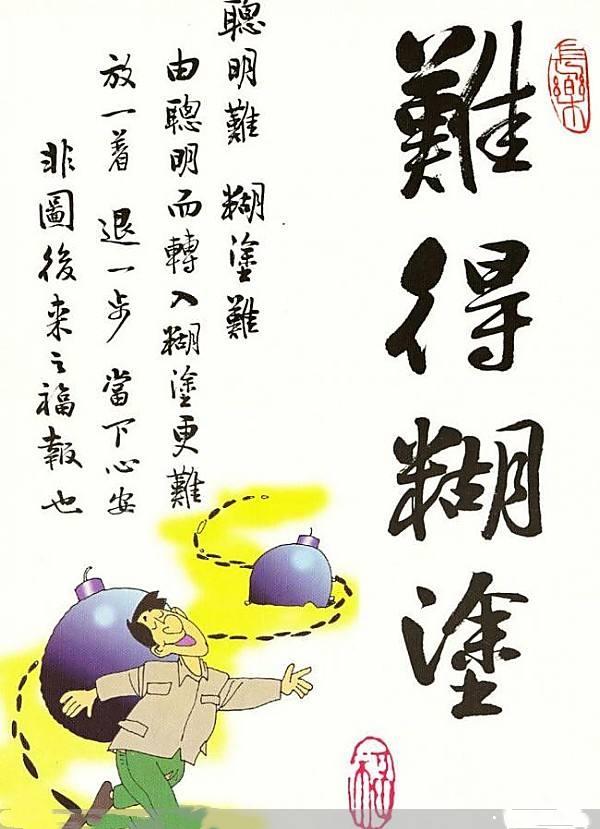 難得糊塗
長樂
聰明難 糊塗難
由聰明而轉入糊塗更難
放一着 退一步 當下心安
非圖後来之福報也